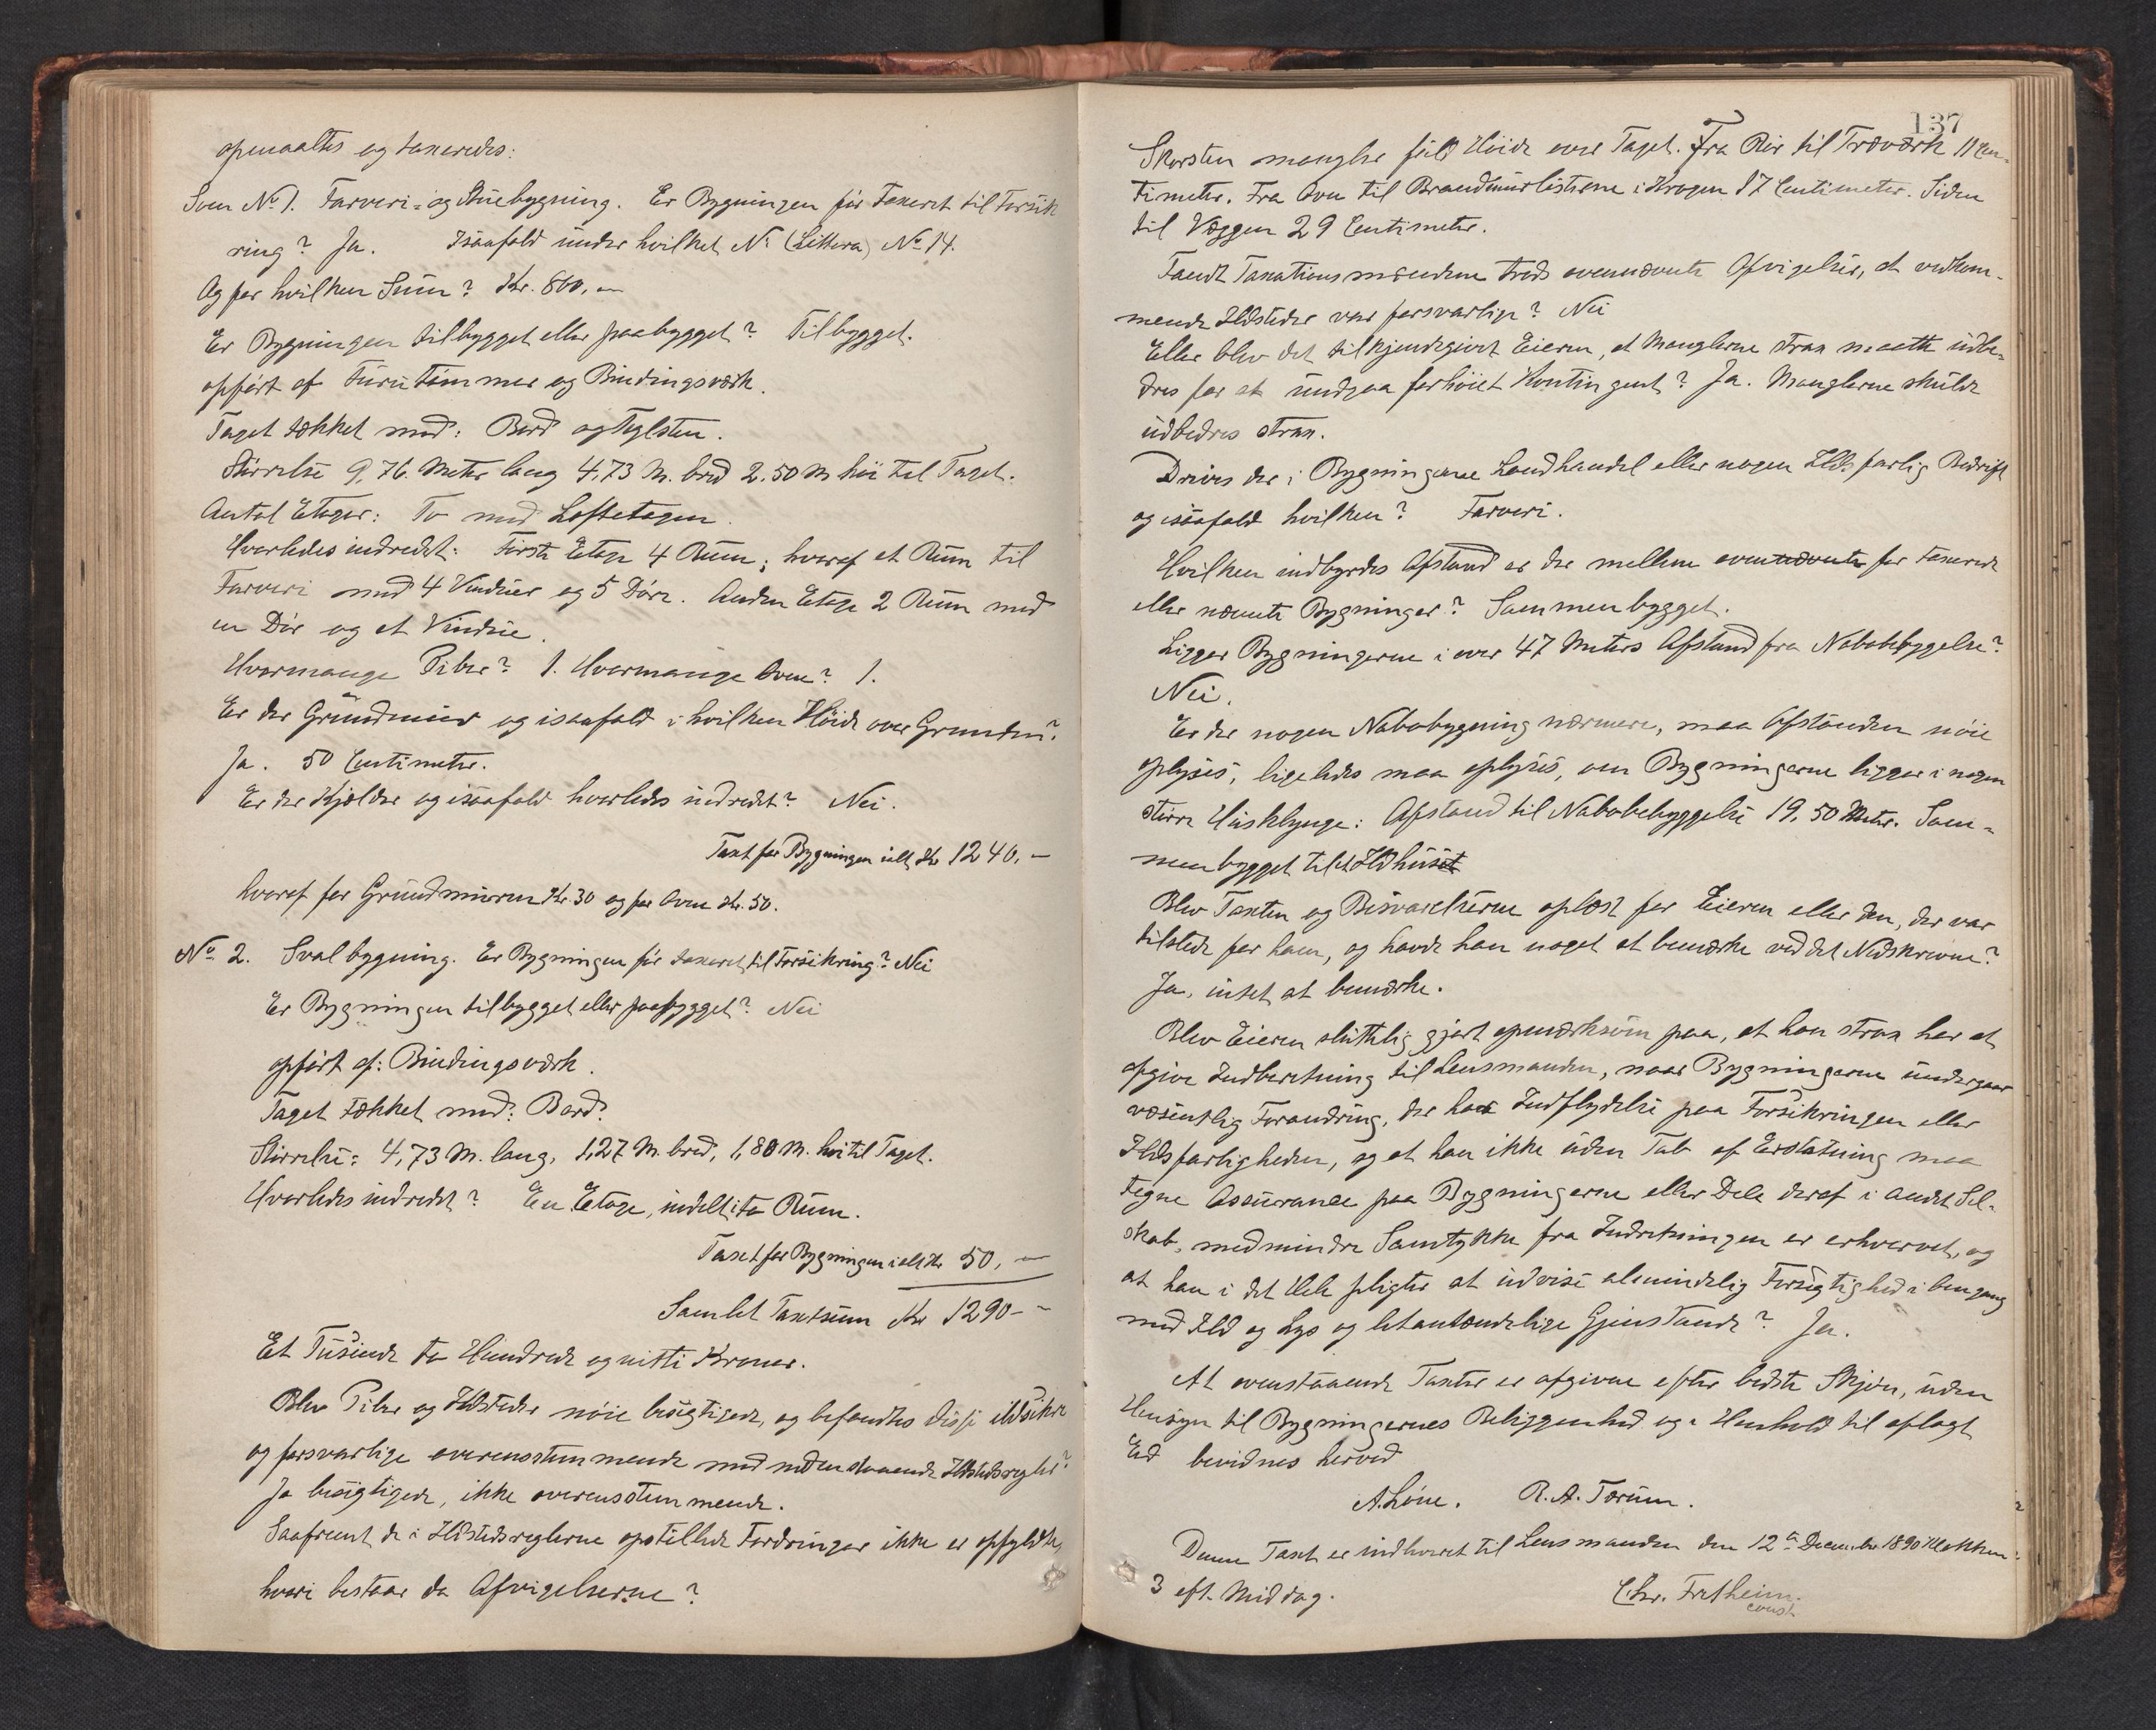 opmaaltes og taxeredes:
Som No 1. Farveri- og Stuebygning. Er Bygningen før Taxeret til Forsik
ring? Ja. Isaafald under hvilket No (Littera) No 14.
Og for hvilken Sum? Kr. 800,-
Er Bygningen tilbygget eller paabygget? Tilbygget.
opført af Furutømmer og Bindingsværk.
Taget tækket med: Bord og Teglsten.
Størrelse 9,76 Meter lang 4,73 M. bred 2.50 M høi til Taget.
Antal Etager: To med Loftetagen.
Hvorledes indredet: Første Etage 4 Rum; hvoraf et Rum til
Farveri med 4 Vinduer og 5 Døre. Anden Etage 2 Rum med
en Dør og et Vindue.
Hvormange Piber? 1. Hvormange Ovne? 1.
Er der Grundmur og isaafald i hvilken Høide over Grunden?
Ja. 50 Centimeter.
Er der Kjælder og isaafald hvorledes indredet? Nei.
Taxt for Bygningen ialt Kr 1240,-
hvoraf for Grundmuren Kr. 30 og for Ovne Kr. 50.
No 2. Svalbygning. Er Bygningen før taxeret til Forsikring? Nei
Er Bygningen tilbygget eller paabygget? Nei
opført af: Bindingsværk.
Taget tækket med: Bord.
Størrelse: 4,73 M. lang, 1,27 M. bred, 1,80 M. høi til Taget.
Hvorledes indredet? En Etage, indelt i to Rum.
Taxt for Bygningen ialt Kr 50,-
Samlet Taxtsum Kr 1290--
Et Tusinde to Hundrede og nitti Kroner.
Blev Piber og Ildsteder nøie besigtigede, og befandtes disse ildsikre
og forsvarlige overensstemmende med nedenstaaende Ildstedsregler?
Ja besigtigede, ikke overensstemmende.
Saafremt de i Ildstedsreglerne opstillede Fordringer ikke er opfyldte,
hvori bestaar da Afvigelserne?
137
Skorsten mangler fuld Høide over Taget. Fra Rør til Træværk 11 Cen-
timeter. Fra Ovn til Brandmurlisterne i Krogen 17 Centimeter. Siden
til Væggen 29 Centimeter.
Fandt Taxationsmændene trods ovennævnte Afvigelser, at vedkom-
mende Ildsteder var forsvarlige? Nei
Eller blev det tilkjendegivet Eieren, at Manglerne strax maatte udbe-
dres for at undgaa forhøiet Kontingent? Ja. Manglerne skulde
udbedres strax.
Drives der i Bygningerne Landhandel eller nogen Ildsfarlig Bedrift
og isaafald hvilken? Farveri.
Hvilken indbyrdes Afstand er der mellem ovennævnte før taxerede
eller nævnte Bygninger? Sammenbygget.
Ligger Bygningerne i over 47 Meters Afstand fra Nabobebyggelse?
Nei.
Er der nogen Nabobygning nærmere, maa Afstanden nøie
oplyses, ligeledes maa oplyses, om Bygningerne ligger i nogen
større Husklynge: Afstand til Nabobebyggelse 19,50 Meter. Sam-
menbygget til et Ildhuset
Blev Taxten og Besvarelserne oplæst for Eieren eller den, der var
tilstede for ham, og havde han noget at bemærke ved det Nedskrevne?
Ja, intet at bemærke.
Blev Eieren sluttelig gjort opmærksom paa, at han strax har at
afgive Indberetning til Lensmanden, naar Bygningerne undergaar
væsentlig Forandring, der har Indflydelse paa Forsikringen eller
Ildsfarligheden, og at han ikke uden Tab af Erstatning maa
tegne Assurance paa Bygningerne eller Dele deraf i andet Sel-
skab, medmindre Samtykke fra Indretningen er erhvervet, og
at han i det Hele pligter at udvise alemindelig Forsigtighed i Omgang
med Ild og Lys og letantændelige Gjenstande? Ja.
At ovenstaaende Taxter er afgivne efter bedste Skjøn, uden
Hensyn til Bygningernes Beliggenhed og i Henhold til aflagt
Ed bevidnes herved
A. Løne. R. A. Tørum.
Denne Taxt er indleveret til Lensmanden den 12te December 1890 Klokken
3 eft. Middag.
Chr. Fretheim.
const.